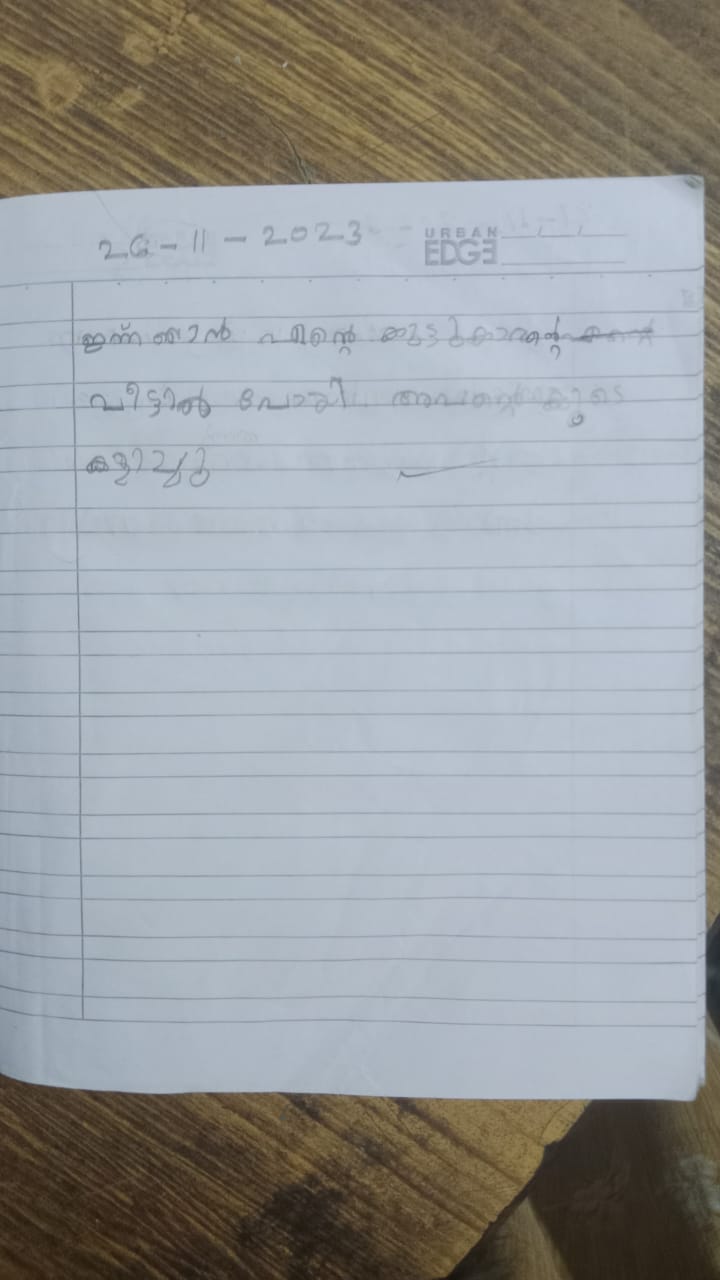 26-11-2023
URBAN
EDGE
ഇന്ന് ഞാൻ എന്റെ കൂട്ടുകാരന്റെ
വീട്ടിൽ പോയി അവന്റെ കൂടെ
കളിച്ചു